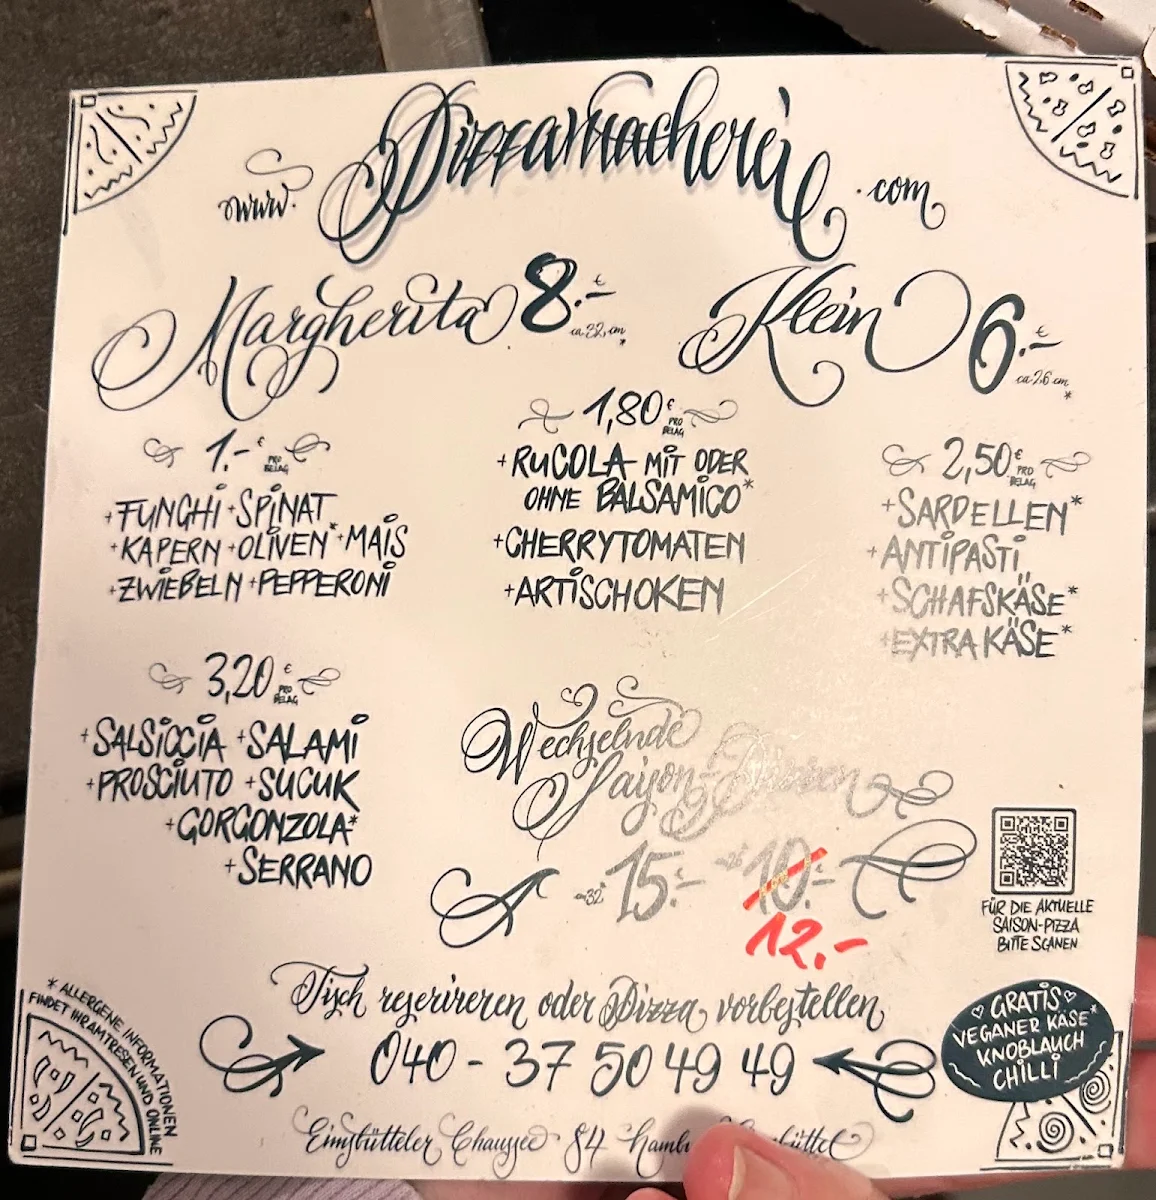 www. Pizzamacherei .com
Margherita 8.-€ ca 32 cm*
Klein 6.-€ ca 26 cm*
1.-€ PRO BELAG
+FUNGHI +SPINAT
+KAPERN +OLIVEN* +MAIS
+ZWIEBELN +PEPPERONI
1,80€ PRO BELAG
+RUCOLA MIT ODER
OHNE BALSAMICO*
+CHERRYTOMATEN
+ARTISCHOKEN
2,50€ PRO BELAG
+SARDELLEN*
+ANTIPASTI
+SCHAFSKÄSE*
+EXTRA KÄSE*
3,20€ PRO BELAG
+SALSICCIA +SALAMI
+PROSCIUTO +SUCUK
+GORGONZOLA*
+SERRANO
Wechselnde
Saison-Pizzen
32 15.- 26 10.-
12.-
FÜR DIE AKTUELLE
SAISON-PIZZA
BITTE SCANEN
Tisch reserireren oder Pizza vorbestellen
040 - 37 50 49 49
♡ GRATIS ♡
VEGANER KÄSE*
KNOBLAUCH
CHILLI
* ALLERGENE INFORMATIONEN
FINDET IHR AM TRESEN UND ONLINE
Eimsbütteler Chaussee 84